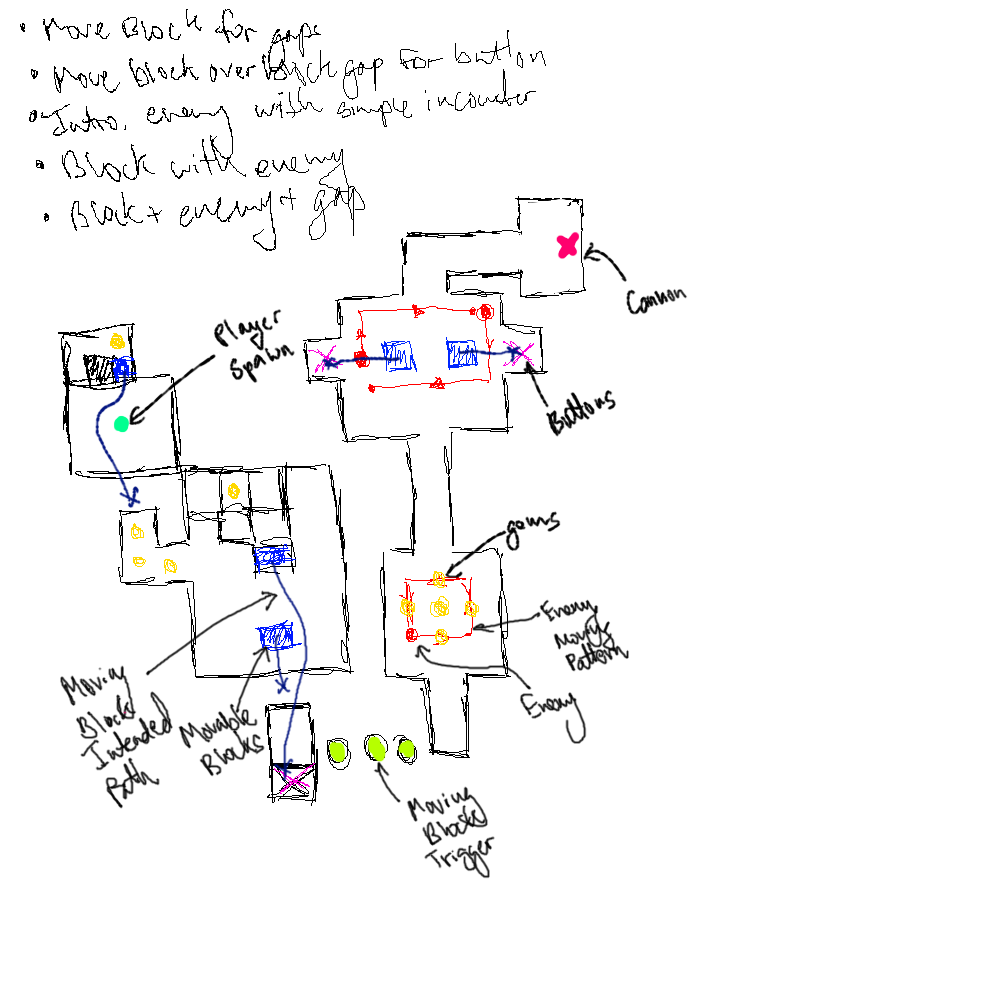 • Move Block for gaps
• Move block over block gap for button
• Intro. enemy with simple incounter
• Block with enemy
• Block + enemy + gap
Cannon
Player
Spawn
Buttons
gems
Enemy
Moving
Pattern
Enemy
Moving
Block
Intended
Path
Movable
Blocks
Moving
Block
Trigger